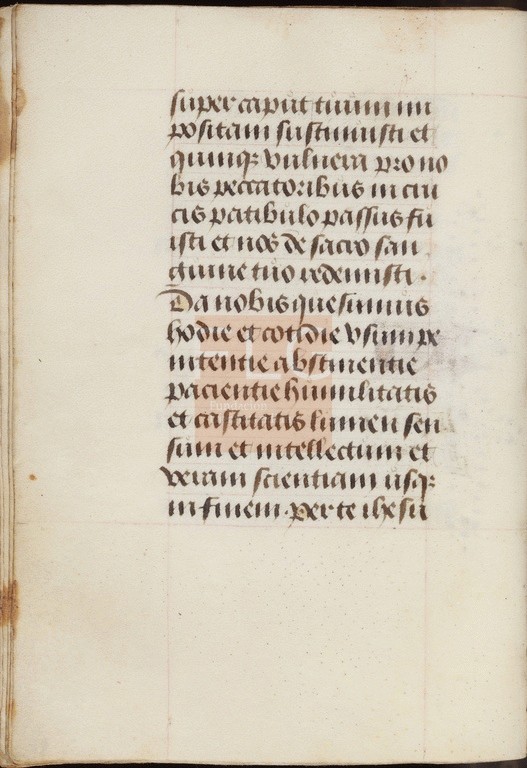 super caput tuum im
positam sustinuisti et
quinqꝫ vulnera pro no
bis peccatoribus in cru
cis patibulo passus fu
isti et nos de sacro san
guine tuo redemisti ·
Da nobis quesumus
hodie et cotidie vsum pe
nitentie abstinentie
paciencie humilitatis
et castitatis lumen sen
sum et intellectum et
veram scientiam usqꝫ
in finem · per te ihesu